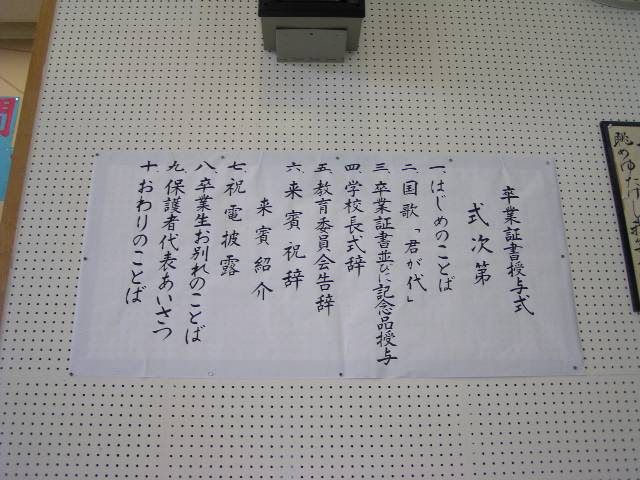 卒業証書授与式
式次第
一、はじめのことば
二、国歌「君が代」
三、卒業証書並びに記念品授与
四、学校長式辞
五、教育委員会告辞
六、来賓祝辞
来賓紹介
七、祝電披露
八、卒業生お別れのことば
九、保護者代表あいさつ
十、おわりのことば